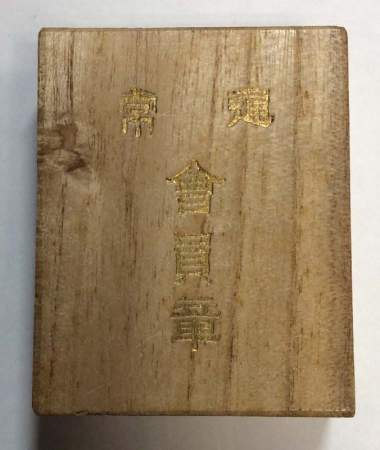 通常
會員章